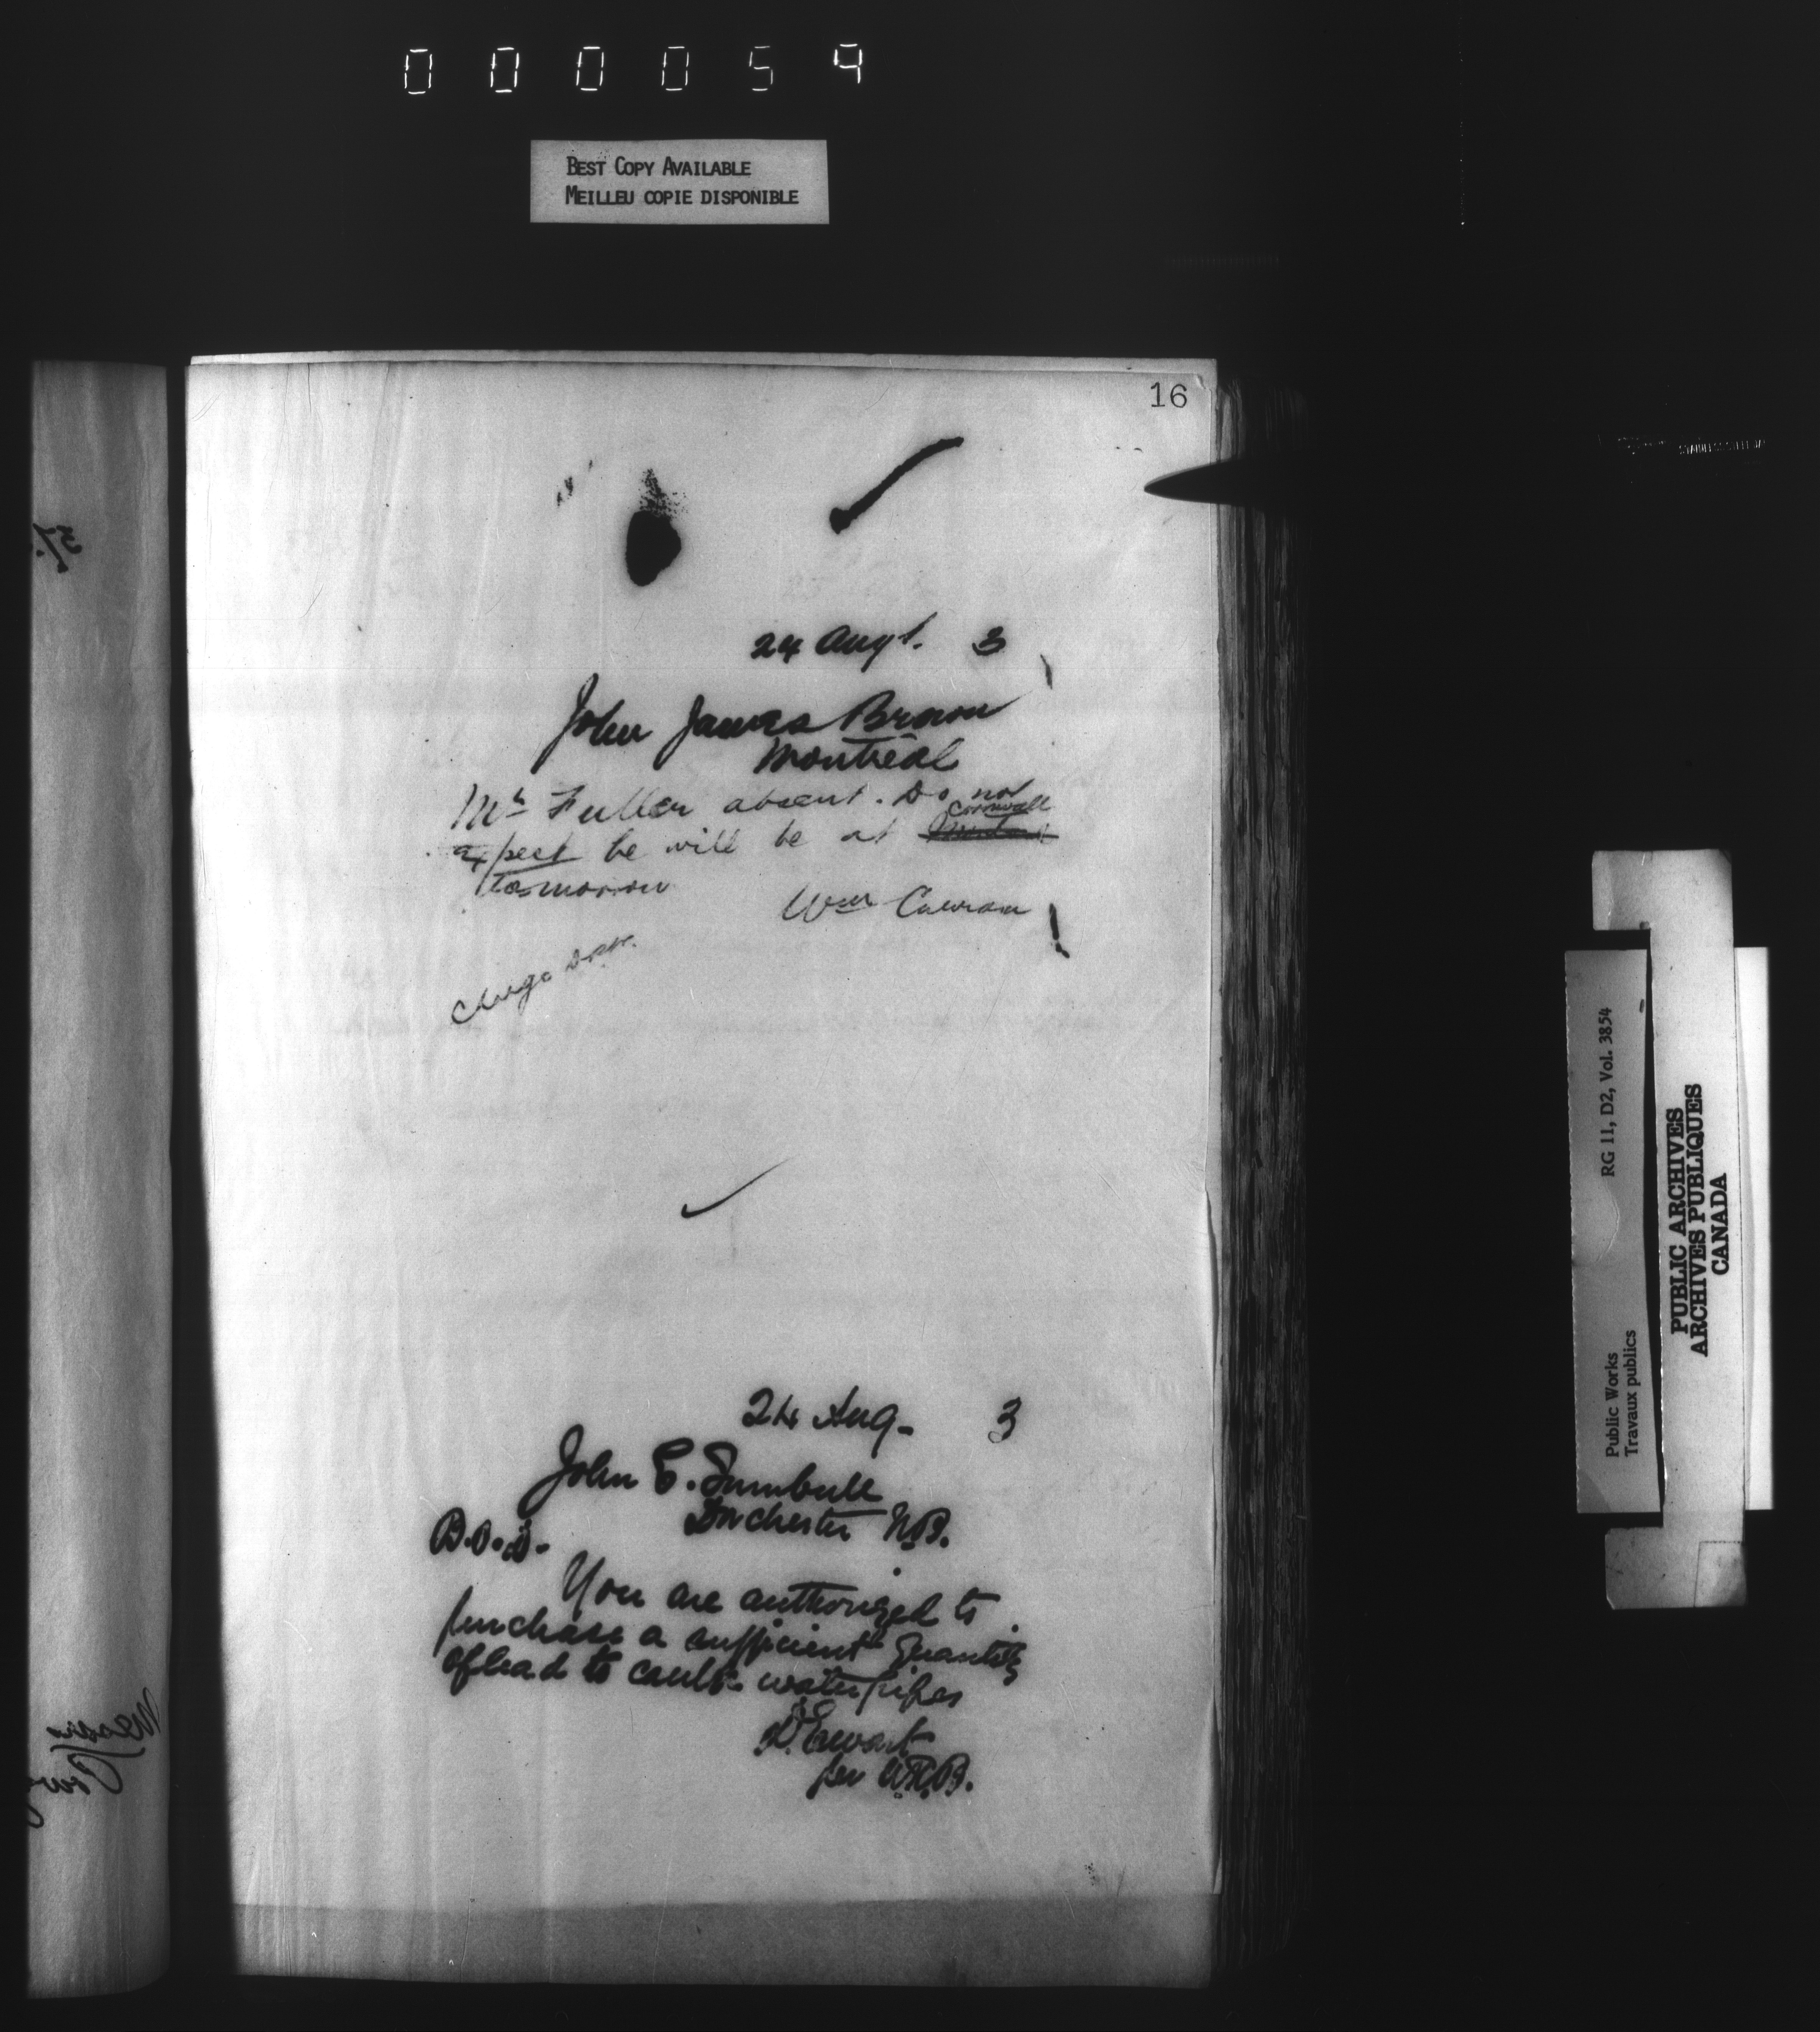 000059
BEST COPY AVAILABLE
MEILLEU COPIE DISPONIBLE
16
24 Augt. 3
John James Brown
Montreal
Mr Fuller absent. Do not
expect he will be at Cornwall
tomorrow
Wm
Charge
24 Aug. 3
John C.
Dorchester N.B.
You are authorized to
purchase a sufficient quantity
of lead to caulk water pipes
D. Ewart
per
RG 11, D2, Vol. 3854
Public Works
Travaux publics
PUBLIC ARCHIVES
ARCHIVES PUBLIQUES
CANADA